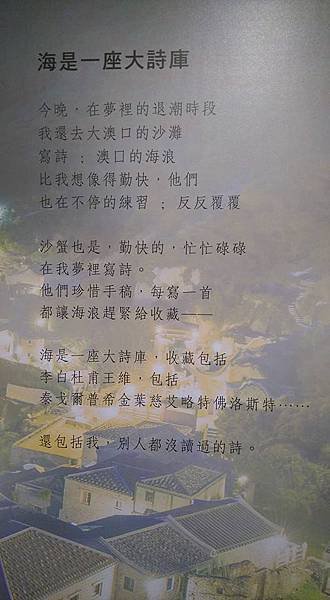 海是一座大詩庫
今晚，在夢裡的退潮時段
我還去大澳口的沙灘
寫詩；澳口的海浪
比我想像得勤快，他們
也在不停的練習；反反覆覆
沙蟹也是，勤快的，忙忙碌碌
在我夢裡寫詩。
他們珍惜手稿，每寫一首
都讓海浪趕緊給收藏——
海是一座大詩庫，收藏包括
李白杜甫王維，包括
泰戈爾普希金葉慈艾略特佛洛斯特……
還包括我，別人都沒讀過的詩。